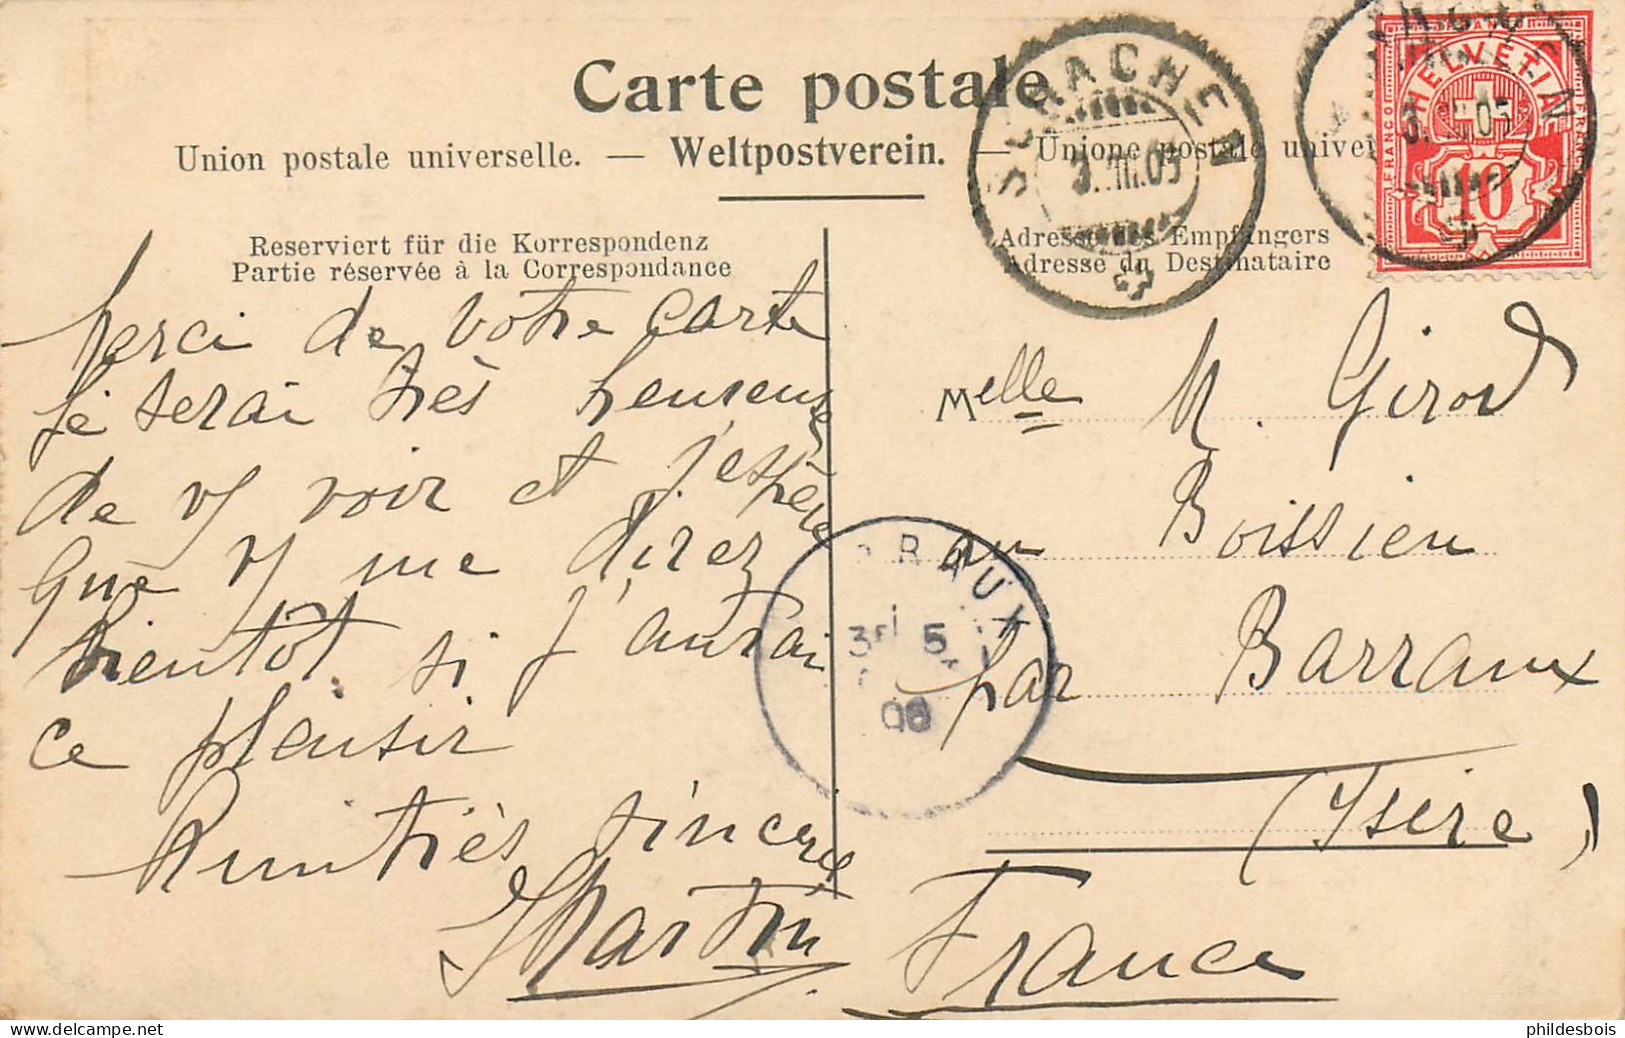 Carte postale
Union postale universelle. — Weltpostverein. — Unione postale univer
Reserviert für die Korrespondenz
Partie réservée à la Correspondance
Adresse des Empfängers
Adresse du Destinataire
HELVETIA
FRANCO
10
Merci de votre carte
Je serai très heureux
de v/ voir et j'espère
que v/ me direz
bientôt si j'aurai
ce plaisir
sincères
Martin
Melle M. Girod
au Boissieu
par Barraux
(Isère)
France
RRAUX
5
phildesbois